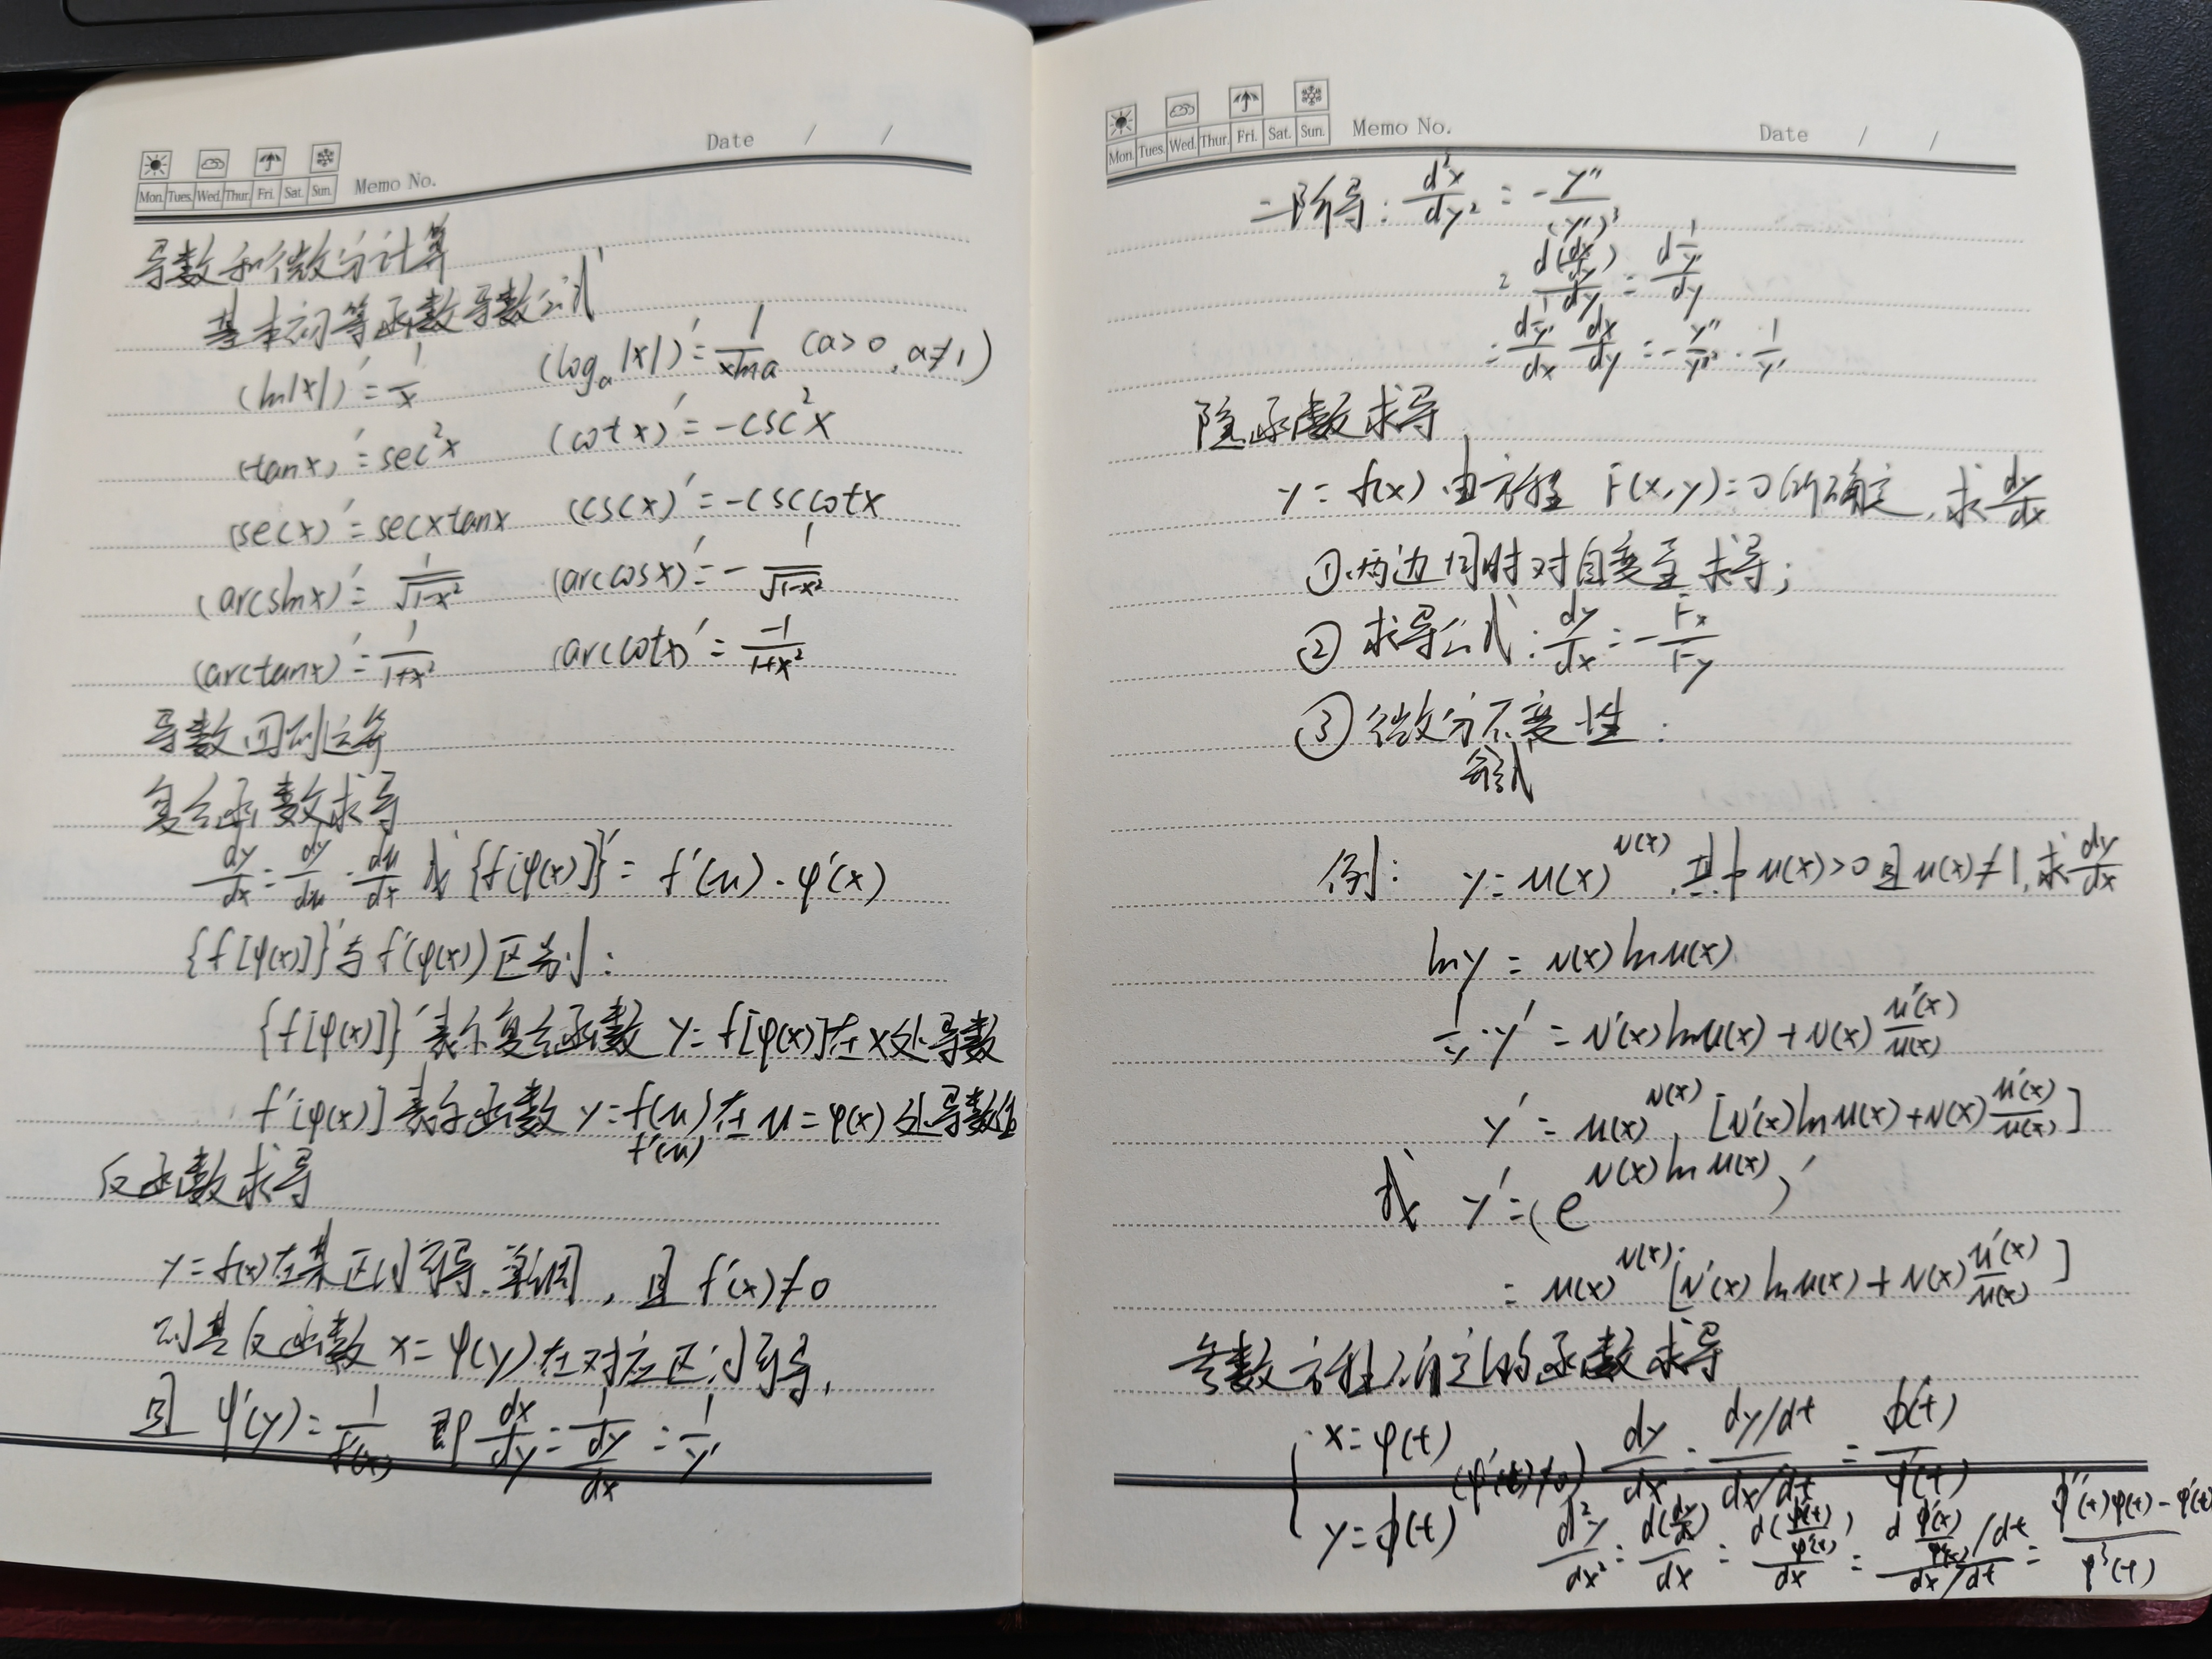 Date / /
Mon. Tues. Wed. Thur. Fri. Sat. Sun. Memo No.
导数和微分计算
基本初等函数导数公式
(ln|x|)' = 1/x (logₐ|x|)' = 1/(xlna) (a>0, a≠1)
(tanx)' = sec²x (cotx)' = -csc²x
(secx)' = secxtanx (cscx)' = -csccotx
(arcsinx)' = 1/√(1-x²) (arccosx)' = - 1/√(1-x²)
(arctanx)' = 1/(1+x²) (arccotx)' = -1/(1+x²)
导数四则运算
复合函数求导
dy/dx = dy/du · du/dx 或 {f[φ(x)]}' = f'(u)·φ'(x)
{f[φ(x)]}'与f'(φ(x))区别:
{f[φ(x)]}'表示复合函数 y=f[φ(x)]在x处导数
f'[φ(x)]表示函数 y=f(u)在u=φ(x)处导数值
f'(u)
反函数求导
y=f(x)在某区间可导.单调,且f'(x)≠0
则其反函数 x=φ(y)在对应区间可导,
且 φ'(y)=1/f'(x) 即 dx/dy = 1/(dy/dx) = 1/y'
Mon. Tues. Wed. Thur. Fri. Sat. Sun. Memo No. Date / /
二阶导: d²x/dy² = - y''/(y')³
= d(dx/dy)/dy = d(1/y')/dy
= d(1/y')/dx dx/dy = - y''/y'² · 1/y'
隐函数求导
y=f(x)由方程 F(x,y)=0所确定,求dy/dx
①两边同时对自变量求导;
②求导公式: dy/dx = - Fx/Fy
③微分不变性:
形式
例: y=u(x)^v(x),其中u(x)>0且u(x)≠1,求dy/dx
lny = v(x)lnu(x)
1/y·y' = v'(x)lnu(x)+v(x) u'(x)/u(x)
y' = u(x)^v(x) · [v'(x)lnu(x)+v(x) u'(x)/u(x)]
或 y'=(e^(v(x)lnu(x)))'
= u(x)^v(x)·[v'(x)lnu(x)+v(x) u'(x)/u(x)]
参数方程确定的函数求导
{ x=φ(t) (φ'(t)≠0) dy/dx = (dy/dt)/(dx/dt) = ϕ'(t)/φ'(t)
y=ϕ(t) d²y/dx² = d(dy/dx)/dx = d(ϕ'(t)/φ'(t))/dx